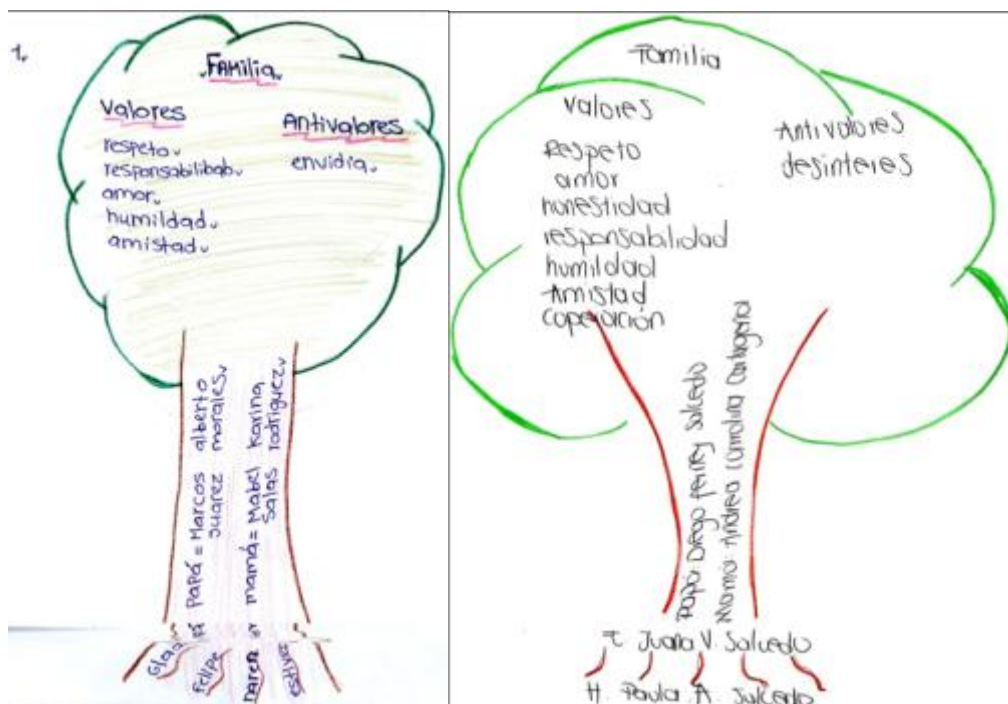 1.
Familia
Valores
respeto
responsabilibab
amor
humildad
amistad
Antivalores
envidia
Papá = Marcos alberto
juarez morales
mamá = Mabel Karina
Salas rodriguez
felipe
Familia
Valores
Respeto
amor
honestidad
responsabilidad
humildad
Amistad
Coperación
Antivalores
desinteres
Papá: Diego ferney Salcedo
Mamá: Andrea Carolina Cartagena
Juana V. Salcedo
H. Paula A. Salcedo